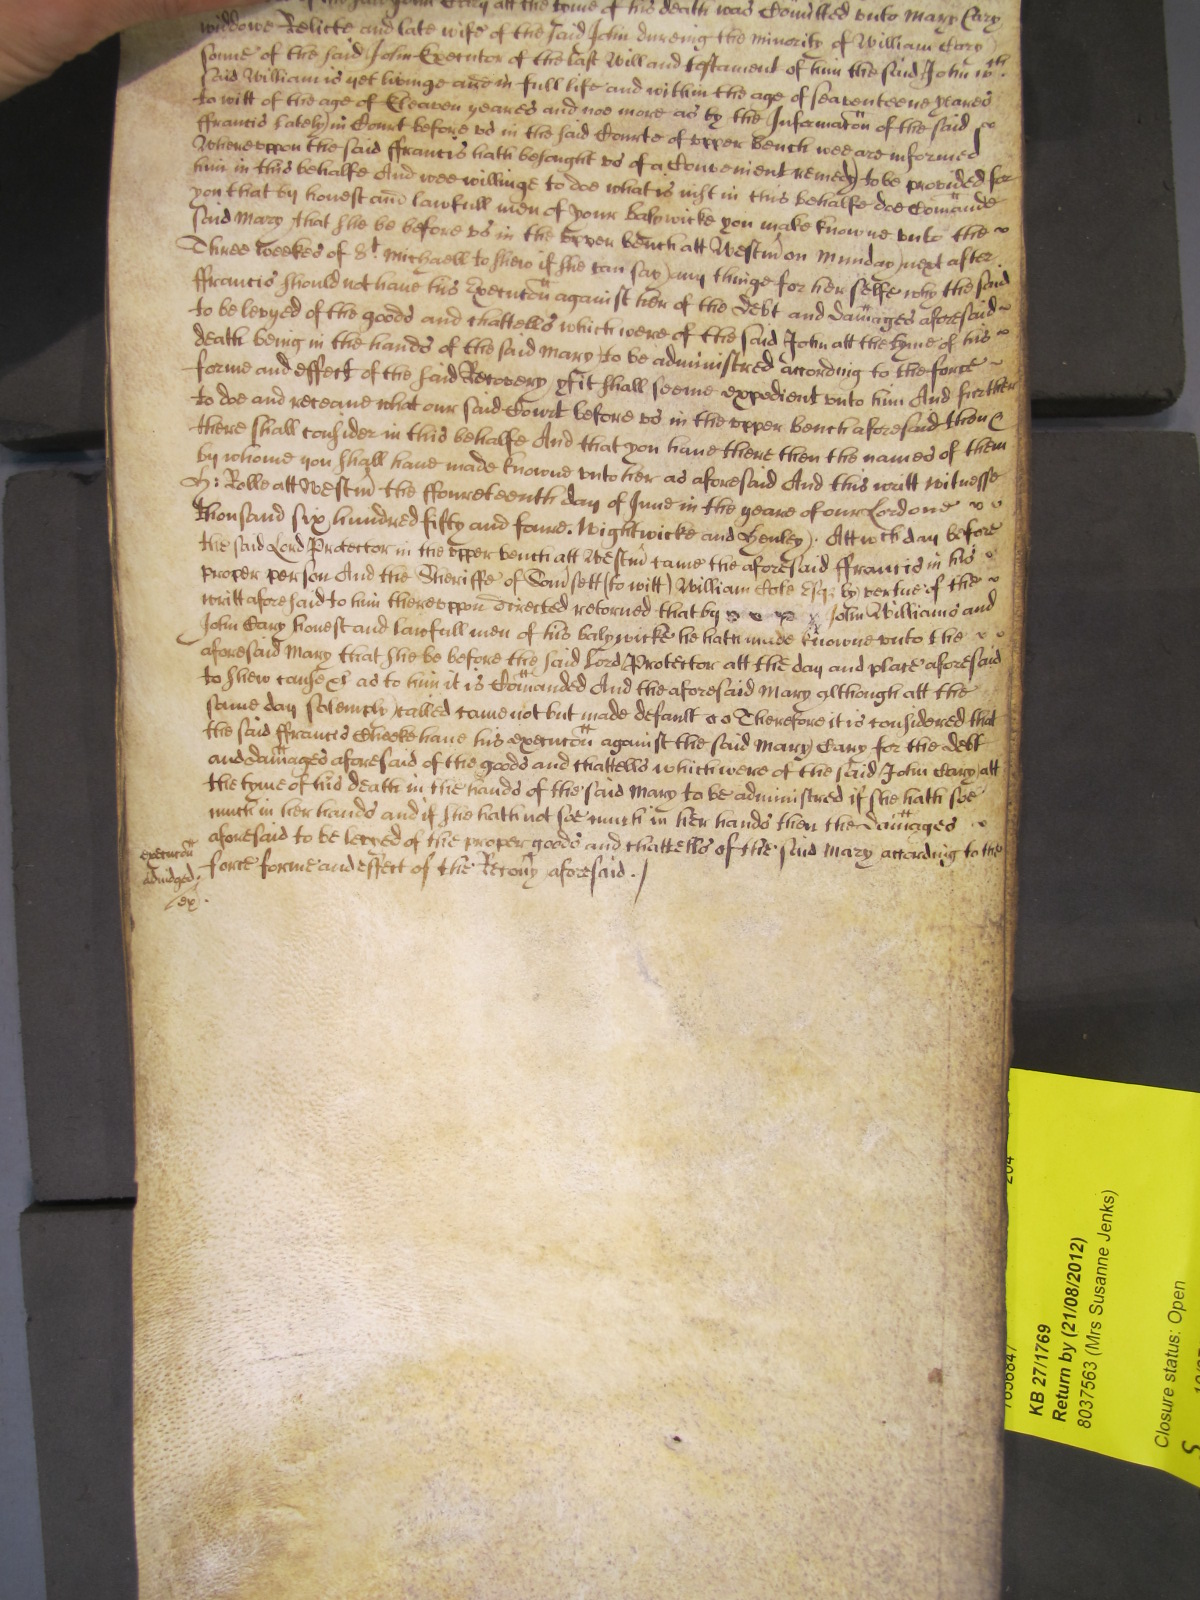 of the said John Cary att the tyme of his death was Com̃itted vnto Mary Cary
widdowe Relicte and late wife of the said John dureing the minority of William Cary
sonne of the said John Executor of the last Will and testament of him the said John wch
said William is yet livinge and in full life and within the age of seaventeene yeares
to witt of the age of Eleaven yeares and noe more as by the Informac̃on of the said
ffrancis lately in Court before vs in the said Courte of vpper bench wee are informed
Wherevppon the said ffrancis hath besought vs of a Convenient remedy to be provided for
him in this behalfe And wee willinge to doe what is iust in this behalfe doe Com̃ande
you that by honest and lawfull men of your balywicke you make knowne vnto the
said Mary that she be before vs in the vpper bench att Westm̃ on Munday next after
Three weekes of St. Michaell to shew if she can say any thinge for her selfe why the said
ffrancis should not have his execuc̃on against her of the debt and dam̃ages aforesaid
to be levyed of the goods and chattells which were of the said John att the tyme of his
death being in the hands of the said Mary to be administred according to the force
forme and effect of the said Recovery yf it shall seeme expedient vnto him And further
to doe and receave what our said Court before vs in the vpper bench aforesaid then &
there shall consider in this behalfe And that you have there then the names of them
by whome you shall have made knowne vnto her as aforesaid And this writt witnesse
H: Rolle att Westm̃ the ffoureteenth day of June in the yeare of our Lord one
thousand six hundred fifty and foure. Wightwicke and Henley. Att wch day before
the said Lord Protector in the vpper bench att Westm̃ came the aforesaid ffrancis in his
proper person And the Sheriffe of Som̃sett (to witt) William Cole Esqr by vertue of the
writt aforesaid to him therevppon directed returned that by John Williams and
John Cary honest and lawfull men of his balywicke he hath made knowne vnto the
aforesaid Mary that she be before the said Lord Protector att the day and place aforesaid
to shew cause &c as to him it is Com̃anded And the aforesaid Mary although att the
same day solemnly called came not but made default Therefore it is considered that
the said ffrancis Cheeke have his execuc̃on against the said Mary Cary for the debt
and dam̃ages aforesaid of the goods and chattells which were of the said John Cary att
the tyme of his death in the hands of the said Mary to be administred if she hath soe
much in her hands and if she hath not soe much in her hands then the dam̃ages
aforesaid to be levyed of the proper goods and chattells of the said Mary according to the
force forme and effect of the Recovy aforesaid.
execuc̃on
adiudged
ex.
204
KB 27/1769
Return by (21/08/2012)
8037563 (Mrs Susanne Jenks)
Closure status: Open